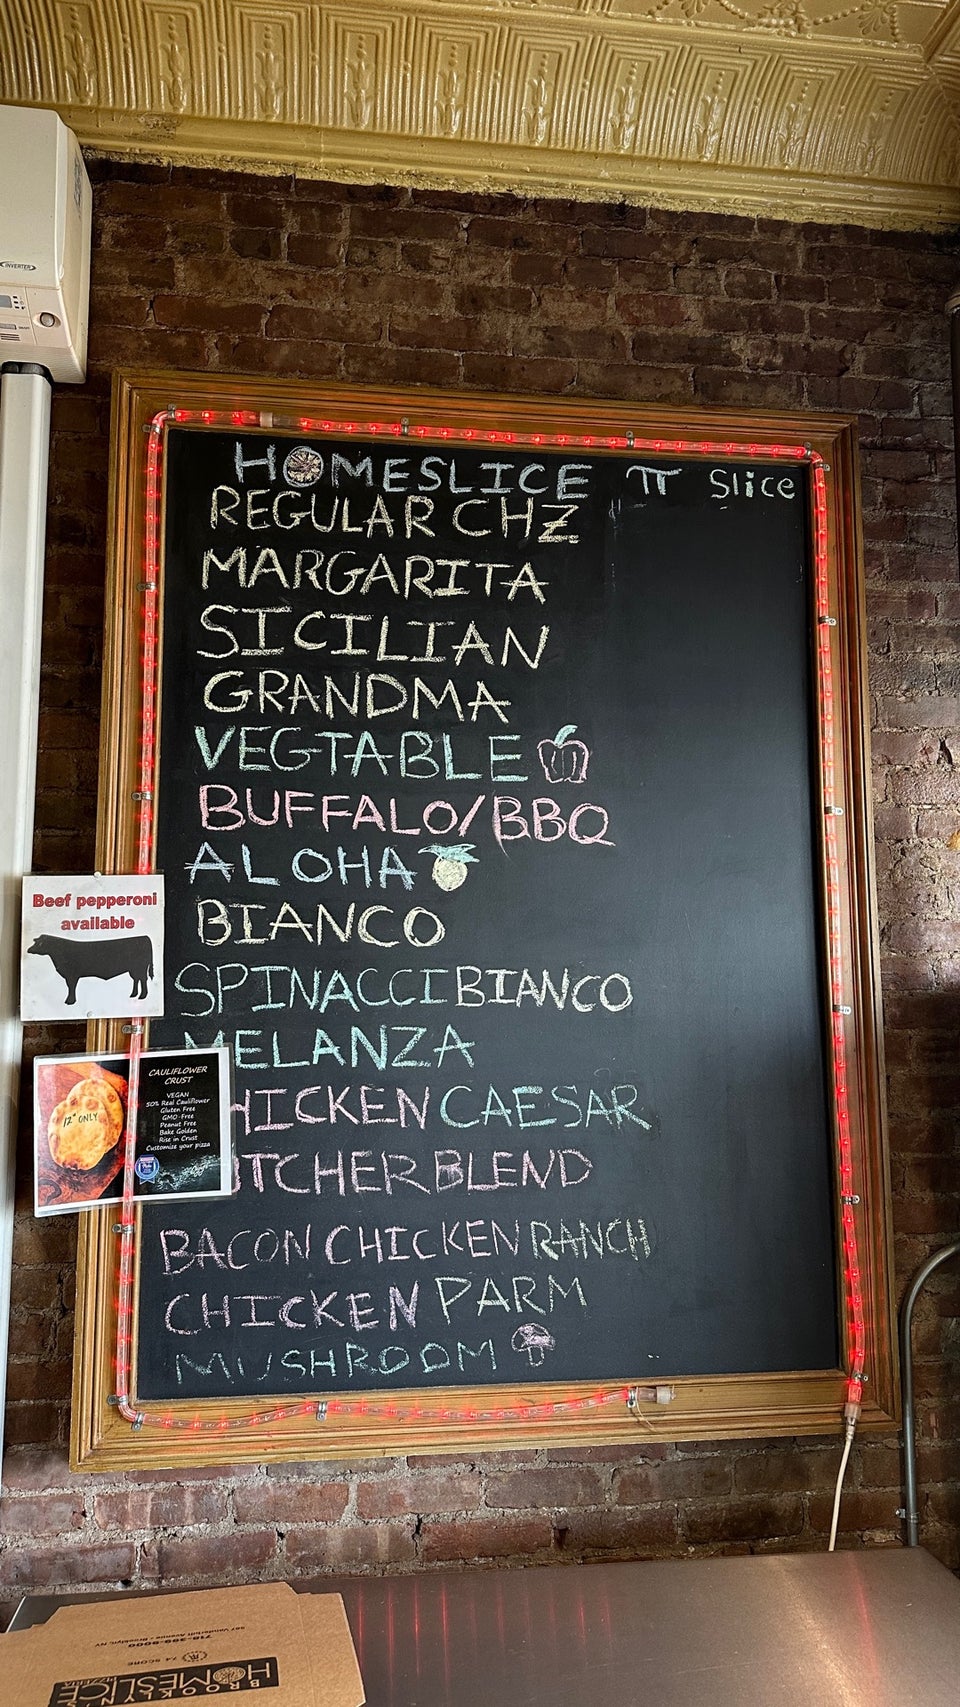 HOMESLICE π Slice
REGULAR CHZ
MARGARITA
SICILIAN
GRANDMA
VEGTABLE
BUFFALO/BBQ
ALOHA
BIANCO
SPINACCI BIANCO
MELANZA
HICKEN CAESAR
UTCHER BLEND
BACON CHICKEN RANCH
CHICKEN PARM
MUSHROOM
Beef pepperoni
available
CAULIFLOWER
CRUST
VEGAN
50% Real Cauliflower
Gluten Free
GMO-Free
Peanut Free
Bake Golden
Rise in Crust
Customize your pizza
12" ONLY
INVERTER
BROOKLYN'S
HOMESLICE
PIZZERIA
7.4 SCORE
718-399-9000
567 Vanderbilt Avenue • Brooklyn, NY